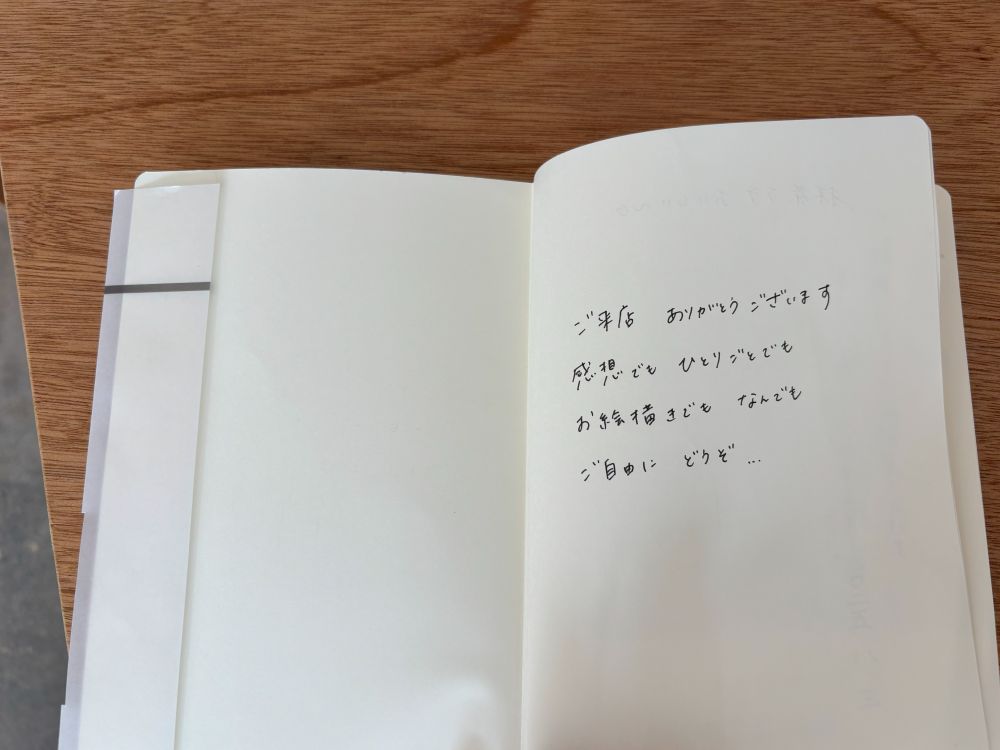 ご来店 ありがとうございます
感想でも ひとりごとでも
お絵描きでも なんでも
ご自由に どうぞ…